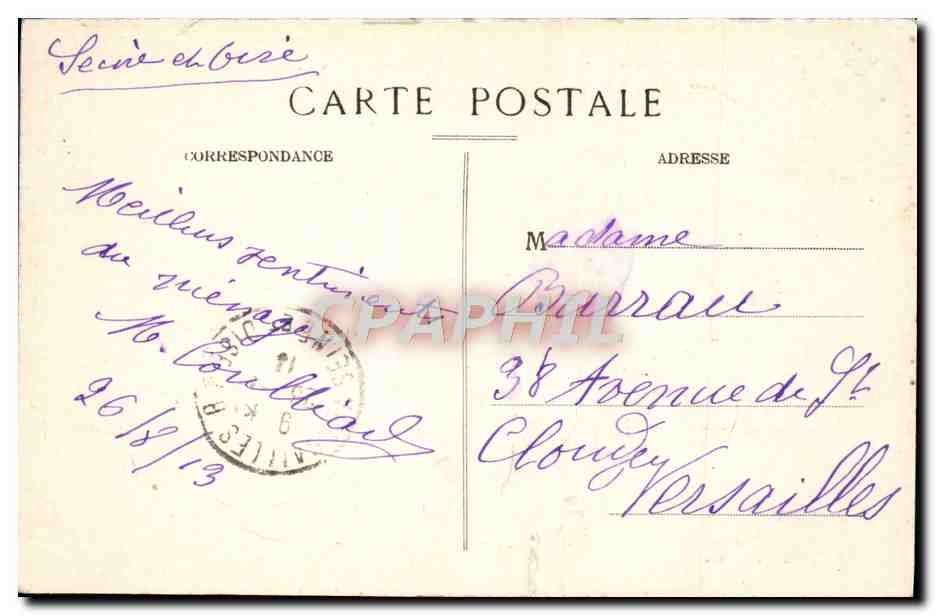 Seine et Oise
CARTE POSTALE
CORRESPONDANCE
ADRESSE
Meilleurs sentiments
du ménage
M.
26/8/13
Madame
Barrau
38 Avenue de St
Cloud
Versailles
CPAPHIL